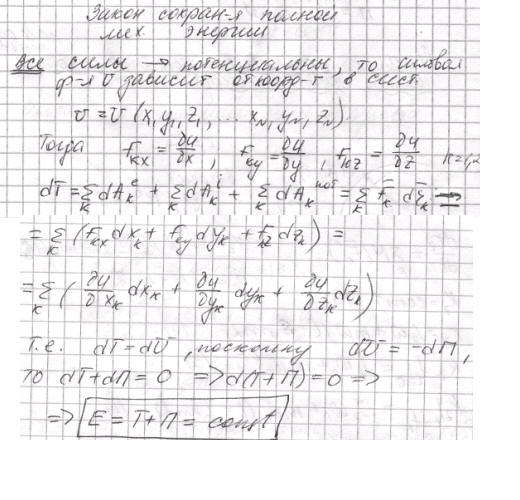 Закон сохран-я полной
мех энергии
Все силы → потенциальны, то силовая
ф-я U зависит от коорд-т в сист.
U = U (x₁ y₁, z₁, ... x_N, y_N, z_N)
Тогда F_kx = ∂U/∂x, F_ky = ∂U/∂y, F_kz = ∂U/∂z k=1,2
dT = Σ_k dA_k^e + Σ_k dA_k^i + Σ_k dA_k^пот = Σ_k F̄_k dr̄_k =
= Σ_k (F_kx dx_k + F_ky dy_k + F_kz dz_k) =
= Σ_k (∂U/∂x_k dx_k + ∂U/∂y_k dy_k + ∂U/∂z_k dz_k)
Т.е. dT = dU, поскольку dU = -dП,
то dT + dП = 0 => d(T+П) = 0 =>
=> E = T + П = const